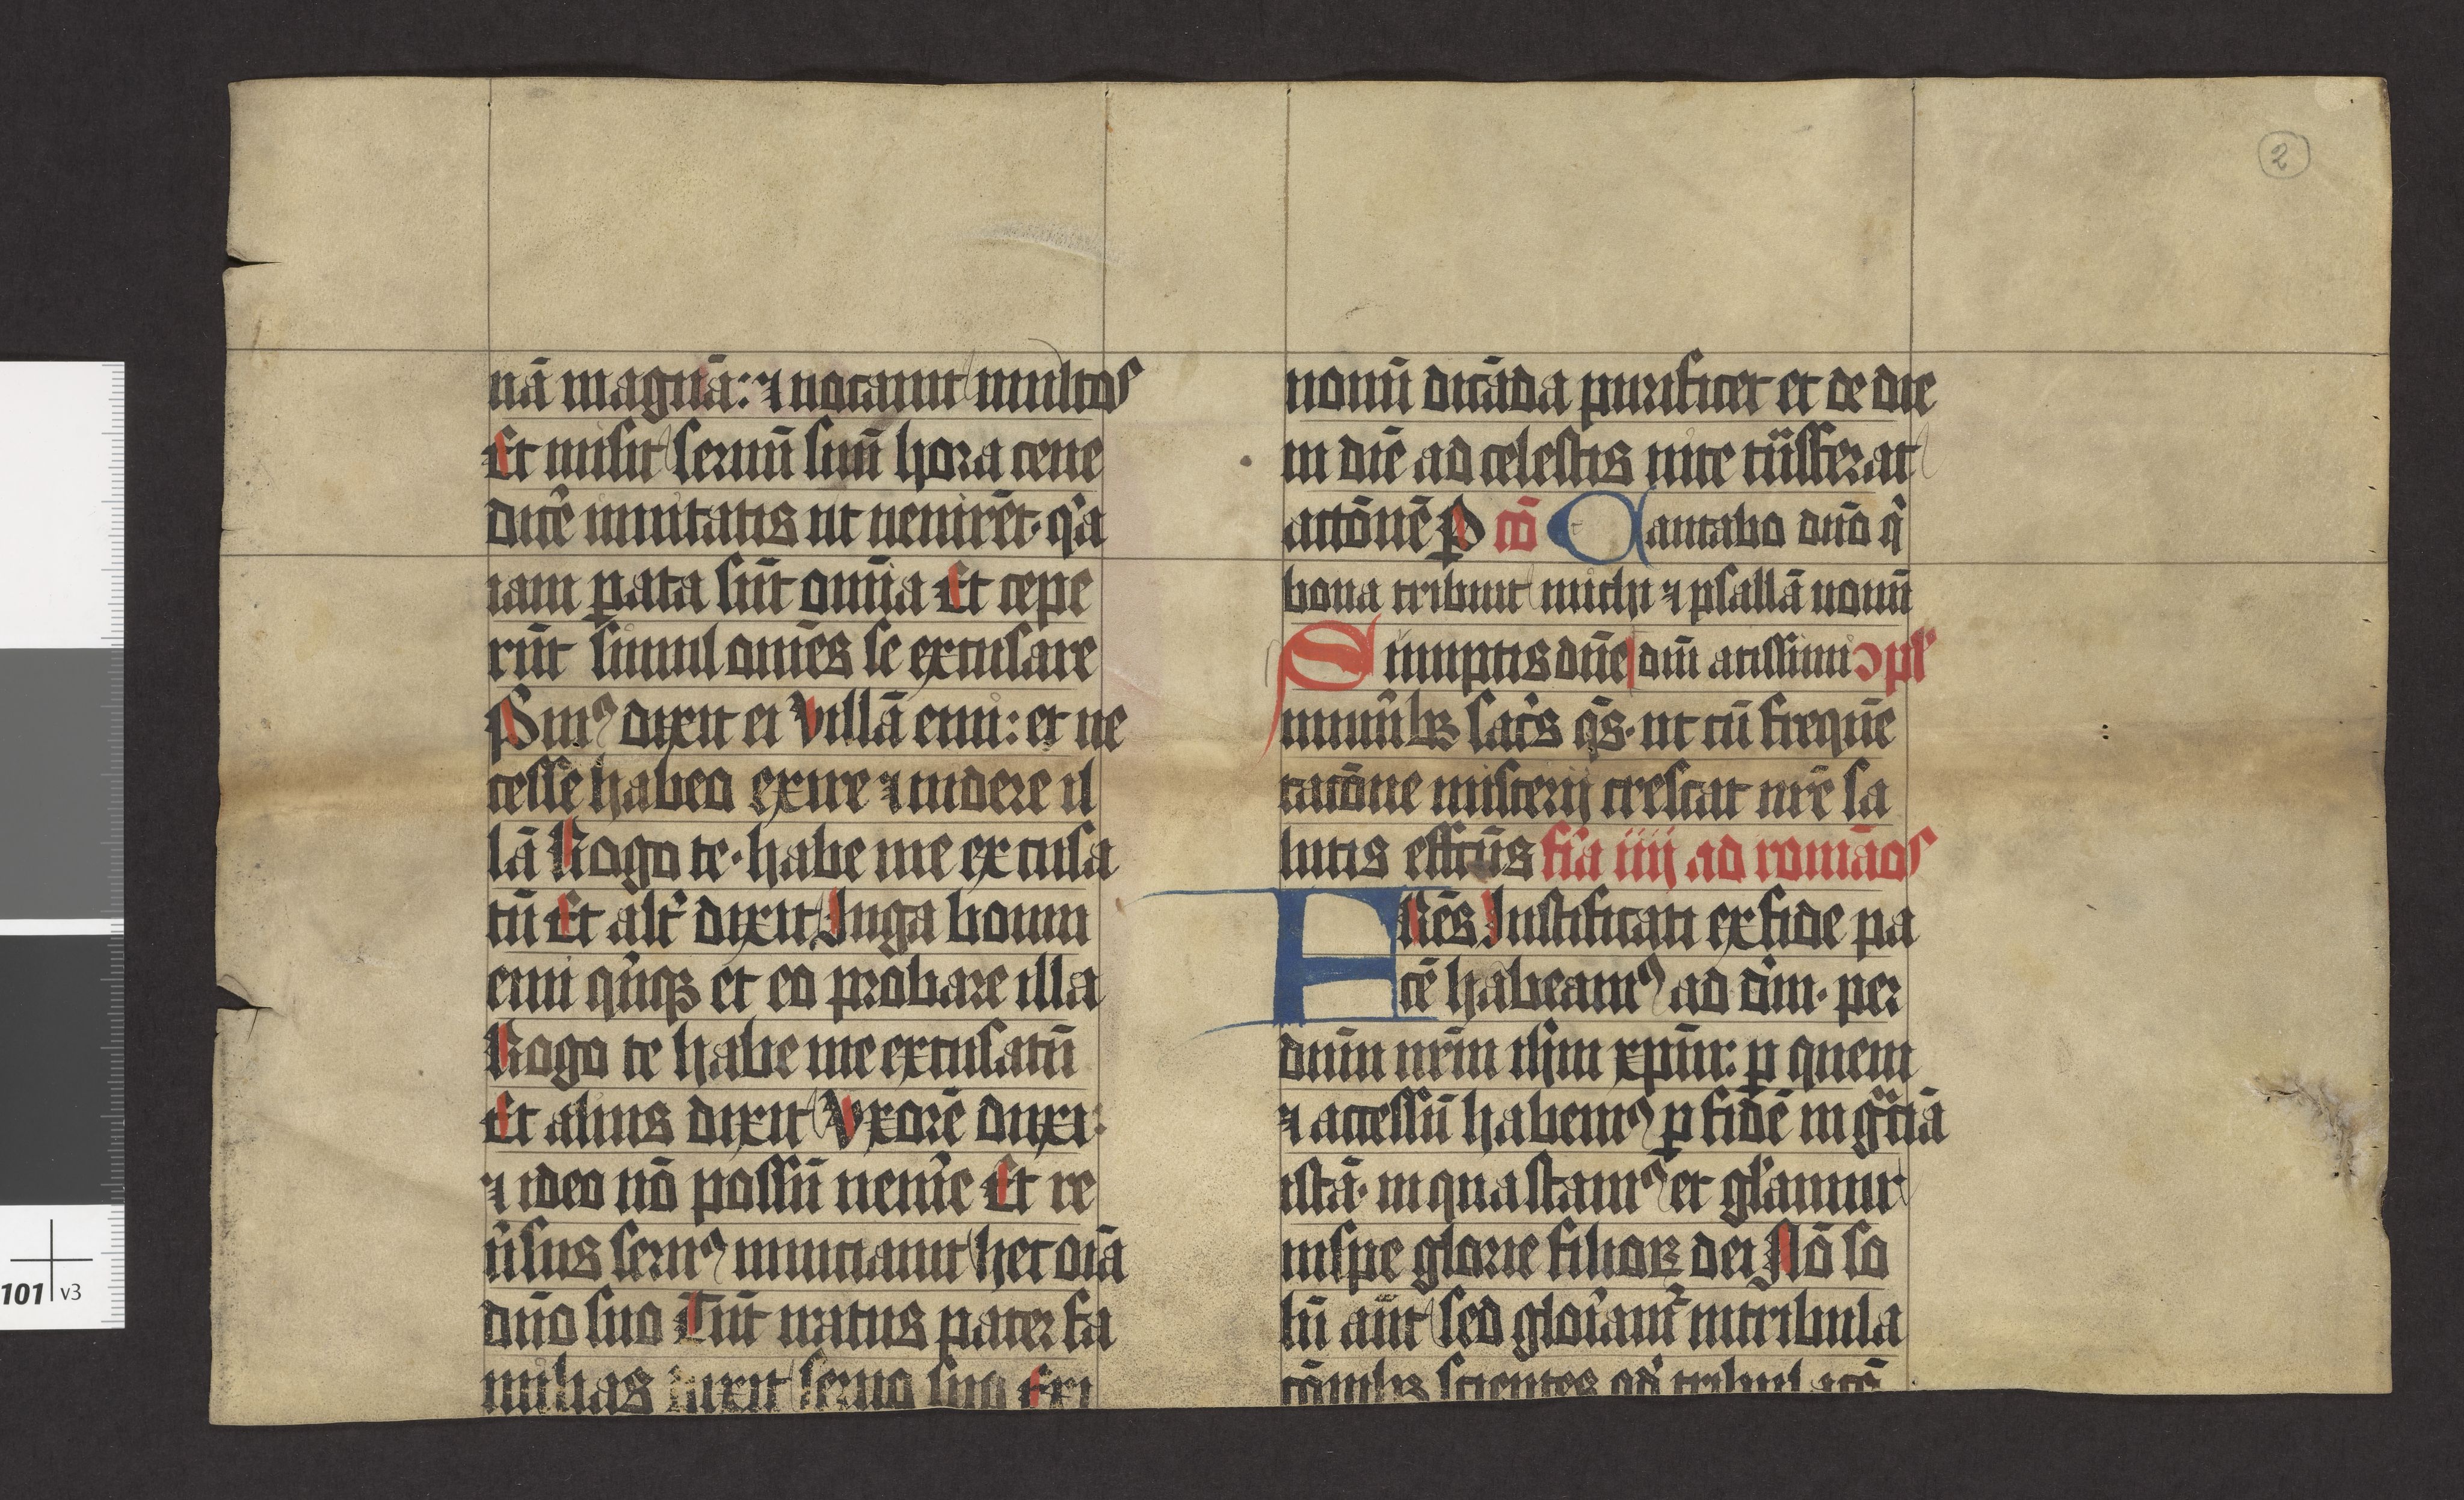 nā magnā: ⁊ uocauit multos
Et misit seruū suū hora cene
dicē inuitatis ut uenirēt· q͛a
iam ꝑata sūt om̄ia Et cepe
rūt simul om̄es se excusare
Pim⁹ dixit ei Villā emi: et ne
cesse habeo exire ⁊ uidere il
lā Rogo te· habe me excusa
tū Et alt͛ dixit Juga boum
emi q͛nqꝫ et eo probare illa
Rogo te habe me excusatū
Et alius dixit Vxorē duxi:
⁊ ideo nō possū uenīe Et re
ūsus seru⁹ nunciauit hec oīa
dūo suo Tūc iratus pater fa
milias dixit seruo suo Exi
nouū dicāda purificet et de die
in diē ad celestis uite trāsferat
actōnē ꝑ cō Cantabo dn̄o q͛
bona tribuit michi ⁊ psallā nomī
Sumptis dn̄e dn̄i altissimi ꝯpl͛
munībꜣ sac͛s q̄s· ut cū freque
tacōne misterij crescat nr̄e sa
lutis effcūs fīa iiij ad romāos
FRēs Justificati ex fide pa
cē habeam⁹ ad dm̄· per
dn̄m nr̄m ihm xp̄m: ꝑ quem
⁊ accessū habem⁹ ꝑ fidē in gr̄ciā
istā· in qua stam⁹ et gl͛amur
in spe glorie filioꝝ dei Nō so
lū aūt sed glo͛amur in tribula
cōnibꜣ scientes qd͛ tribulacō
2
101 v3